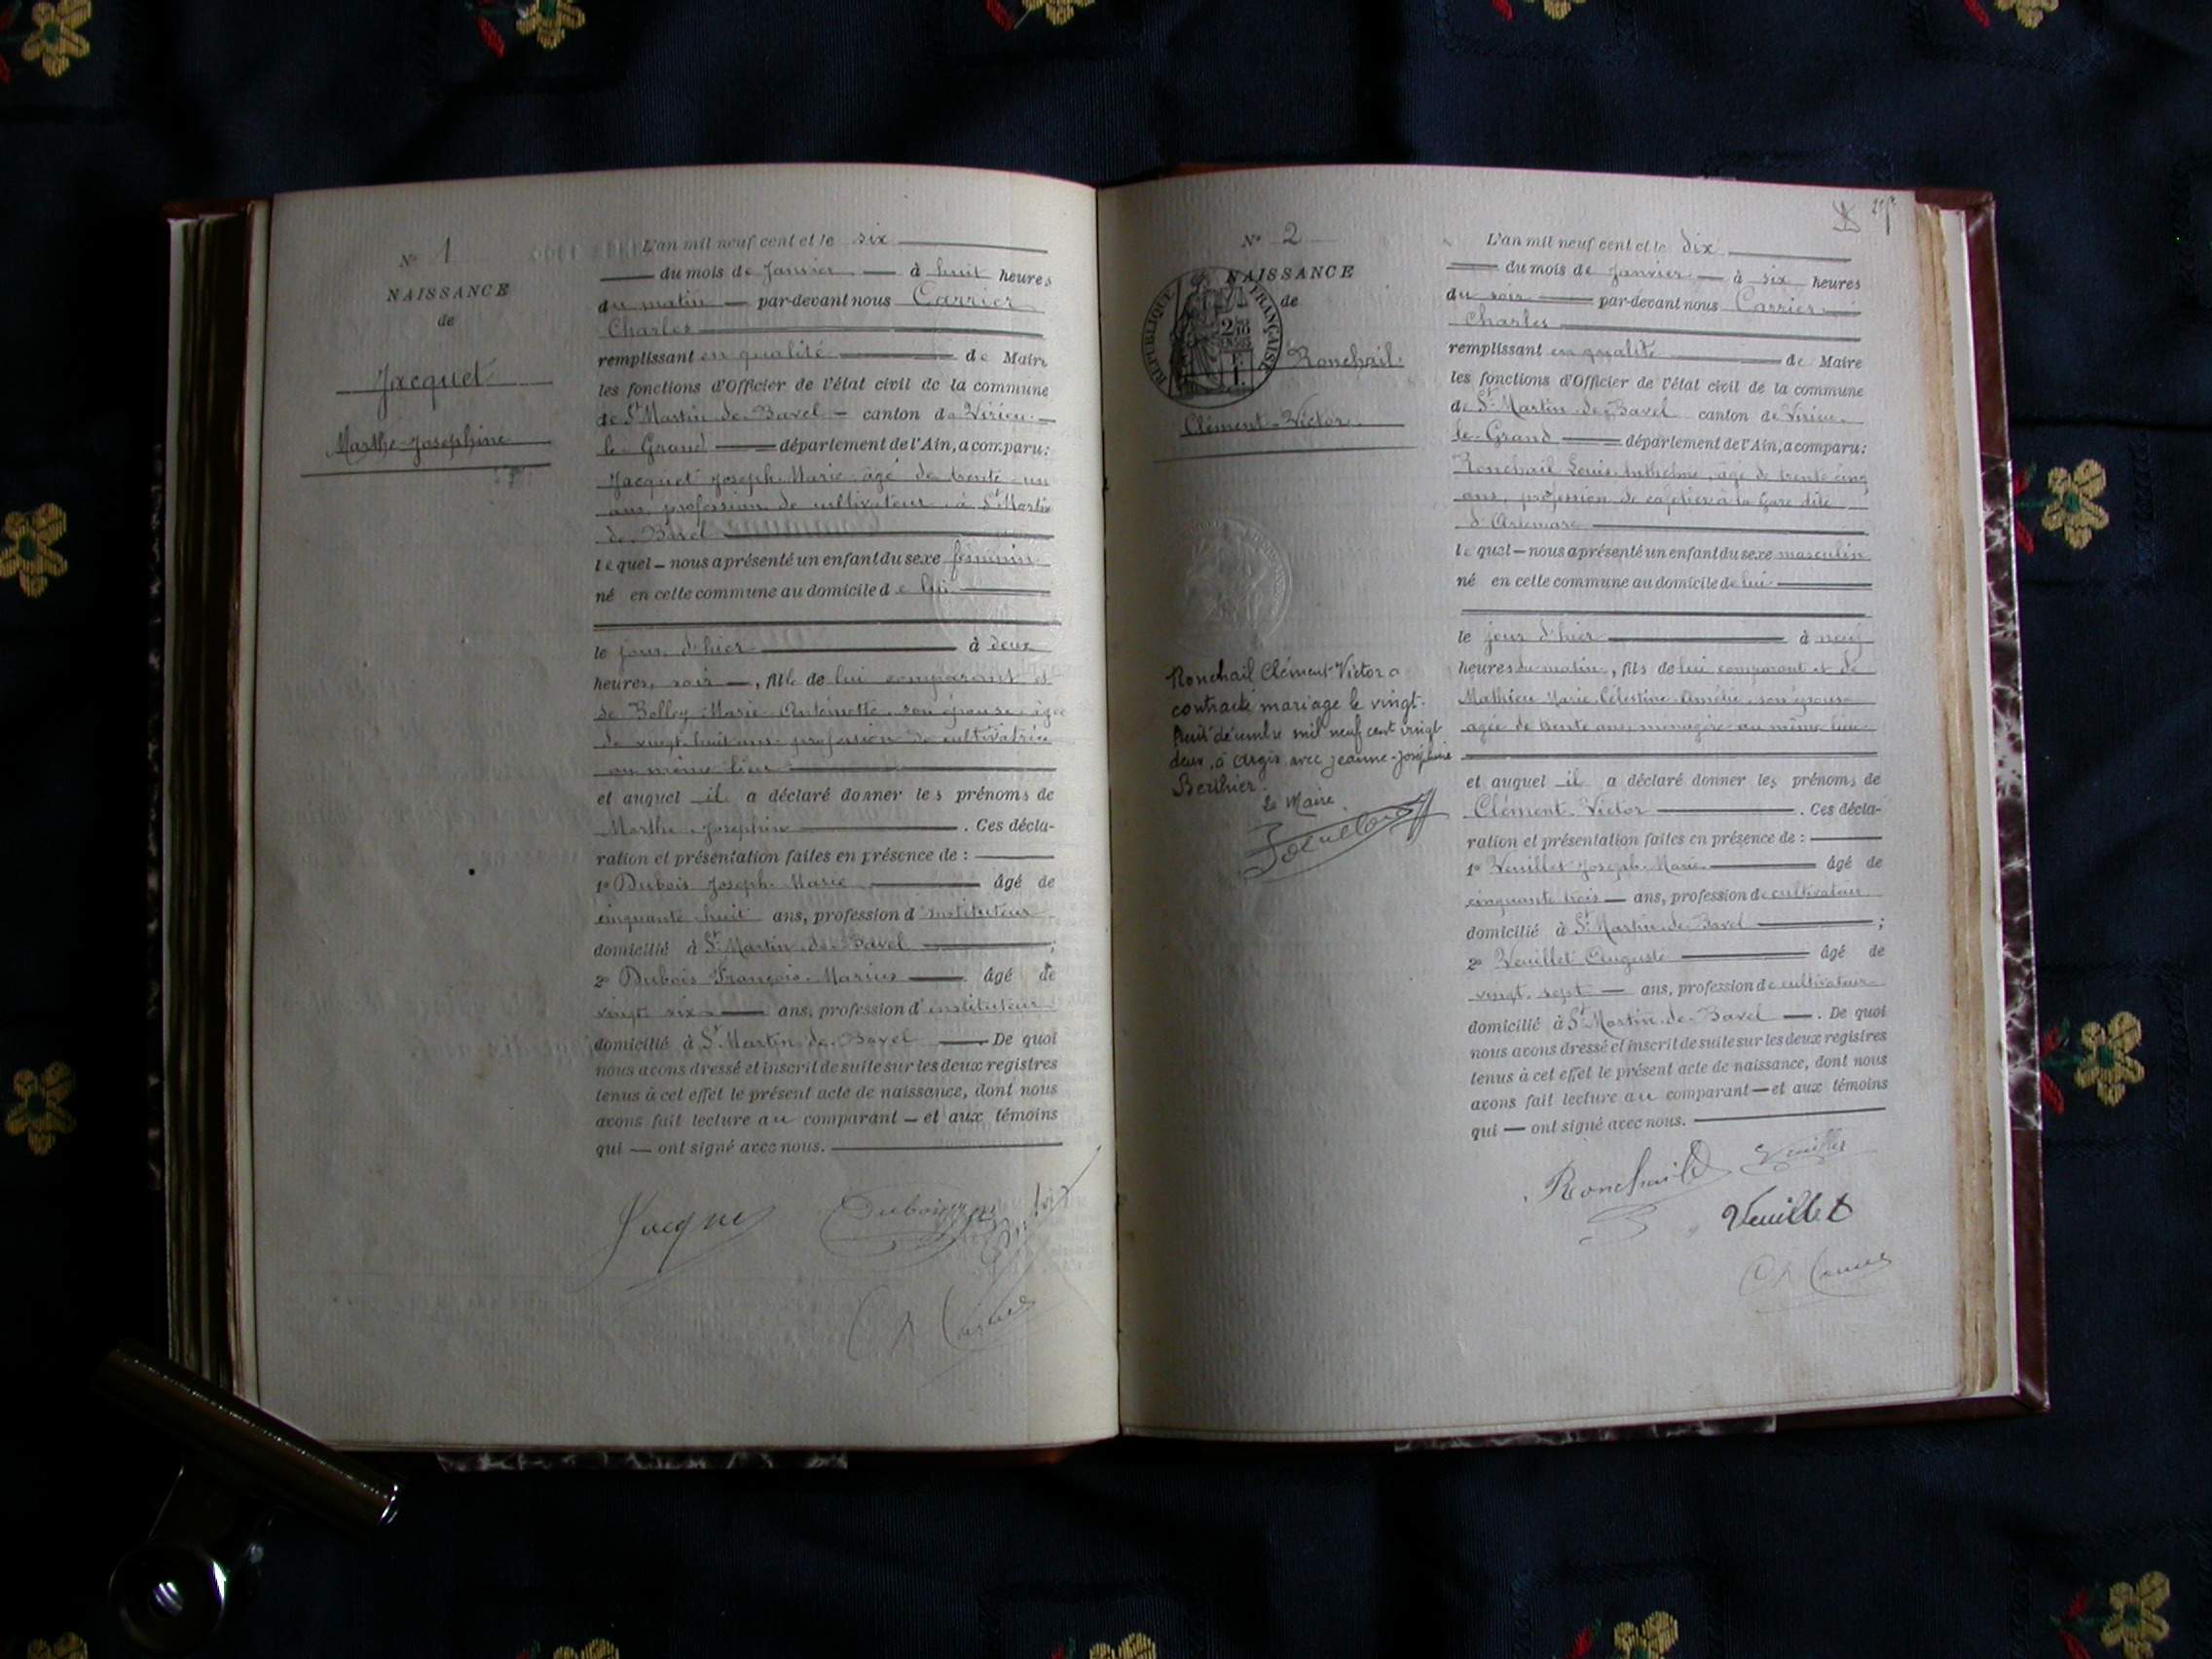 N° 1
NAISSANCE
de
Jacquet
Marthe-Joséphine
L'an mil neuf cent et le six
du mois de Janvier à huit heures
du matin par-devant nous Carrier
Charles
remplissant en qualité de Maire
les fonctions d'Officier de l'état civil de la commune
de St Martin-de-Bavel canton de Virieu-
le-Grand département de l'Ain, a comparu:
Jacquet Joseph-Marie âgé de trente-un
ans, profession de cultivateur à St Martin
de-Bavel
lequel nous a présenté un enfant du sexe féminin
né en cette commune au domicile de lui
le jour d'hier à deux
heures, soir, fille de lui comparant et
de Bolley Marie-Antoinette, son épouse, âgée
de vingt-huit ans, profession de cultivatrice
au même lieu
et auquel il a déclaré donner les prénoms de
Marthe-Joséphine. Ces décla-
ration et présentation faites en présence de :
1° Dubois Joseph-Marie âgé de
cinquante-huit ans, profession d'instituteur
domicilié à St Martin-de-Bavel ;
2° Dubois François-Marius âgé de
vingt-six ans, profession d'instituteur
domicilié à St Martin-de-Bavel. De quoi
nous avons dressé et inscrit de suite sur les deux registres
tenus à cet effet le présent acte de naissance, dont nous
avons fait lecture au comparant et aux témoins
qui ont signé avec nous.
Jacquet Dubois
Ch Carrier
N° 2
NAISSANCE
de
RÉPUBLIQUE FRANÇAISE
Ronchail
Clément-Victor
Ronchail Clément-Victor a
contracté mariage le vingt-
huit décembre mil neuf cent vingt
deux, à Argis avec Jeanne-Joséphine
Berthier.
Le Maire
L'an mil neuf cent et le dix
du mois de Janvier à six heures
du soir par-devant nous Carrier
Charles
remplissant en qualité de Maire
les fonctions d'Officier de l'état civil de la commune
de St Martin-de-Bavel canton de Virieu-
le-Grand département de l'Ain, a comparu:
Ronchail Louis-Anthelme, âgé de trente-cinq
ans, profession de cafetier à la Gare dite
d'Artemare
lequel nous a présenté un enfant du sexe masculin
né en cette commune au domicile de lui
le jour d'hier à neuf
heures du matin, fils de lui comparant et de
Mathieu Marie-Célestine-Amélie, son épouse
âgée de trente ans, ménagère au même lieu
et auquel il a déclaré donner les prénoms de
Clément-Victor. Ces décla-
ration et présentation faites en présence de :
1° Veuillet Joseph-Marie âgé de
cinquante-trois ans, profession de cultivateur
domicilié à St Martin-de-Bavel ;
2° Veuillet Auguste âgé de
vingt-sept ans, profession de cultivateur
domicilié à St Martin-de-Bavel. De quoi
nous avons dressé et inscrit de suite sur les deux registres
tenus à cet effet le présent acte de naissance, dont nous
avons fait lecture au comparant et aux témoins
qui ont signé avec nous.
Ronchail Veuillet
Veuillet
Ch Carrier